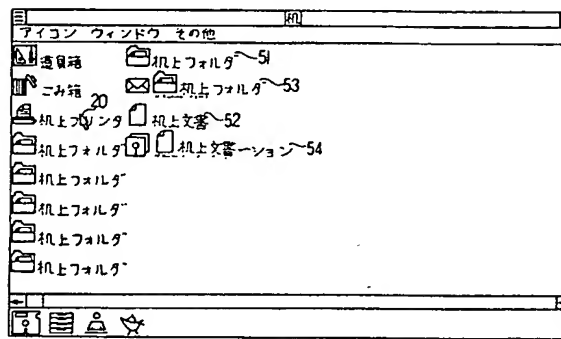 机
アイコン ウィンドウ その他
道具箱 机上フォルダ 51
ごみ箱 机上フォルダ 53
20
机上プリンタ 机上文書 52
机上フォルダ 机上文書ーション 54
机上フォルダ
机上フォルダ
机上フォルダ
机上フォルダ